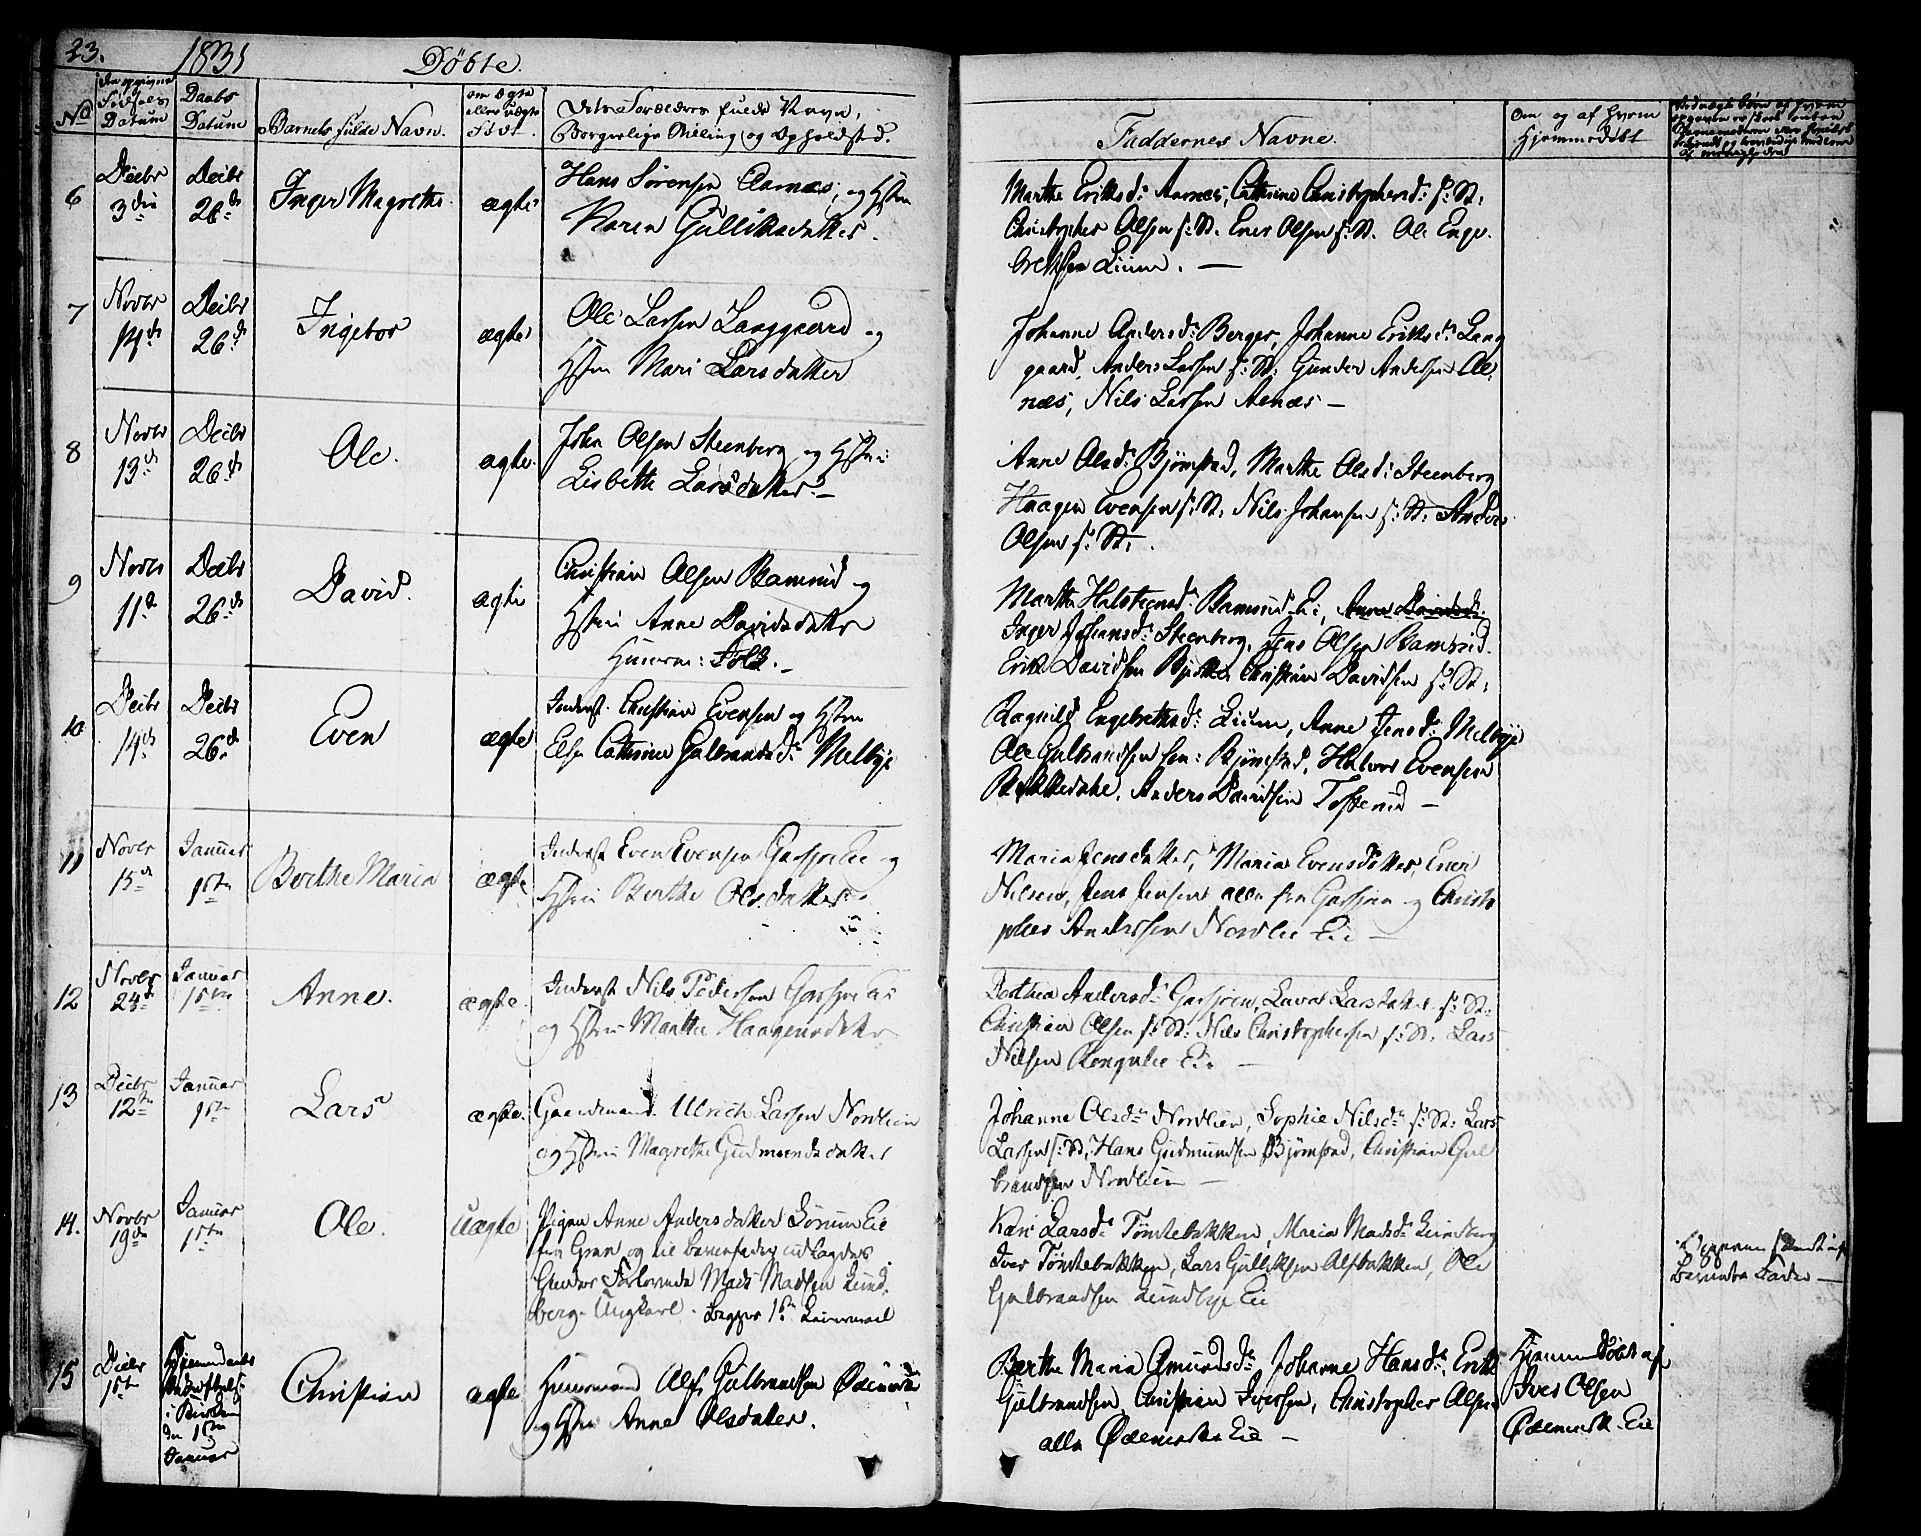 23. 1831 Døbte.
No
Den opgivne Fødsels Datum
Daabs Datum
Barnets fulde Navn.
om ægte eller uægte Født.
Borgerlige Stilling og Opholdsted.
Faddernes Navne.
Om og af hvem Hjemmedøbt
6
Decbr 3die
Decbr 26d
Inger Magrethe
ægte
Hans Sørensen Aarnæs, og Hstru
Karen Gulliksdatter.
Marthe Eriksd: Aarnæs, Cathrine Christophersd: f: St:
Christopher Olsen f: St. Ener Olsen f: St. Ole Enge-
bretsen Lium. —
7
Novbr 14d
Decbr 26d
Ingebor
ægte
Ole Larsen Langgaard og
Hstru Mari Larsdatter
Johanne Andersd: Berger, Johanne Eriksd: Lang
gaard, Anders Larsen f: St: Gunder Andersen
næs, Nils Larsen Aenæs —
8
Novbr 13d
Decbr 26d
Ole.
ægte.
John Olsen Steenberg og Hstru
Lisbette Larsdatter. —
Anne Olsd: Bjørnstad, Marthe Olsd: Steenberg
Haagen Evensen f: St: Nils Johansen f: St: Anders
Olsen f: St:.
9
Novbr 11d
Decbr 26d
David.
ægte
Christian Olsen Ramsrud og
Hstru Anne Davidsdatter
Huusm: Folk. —
Marthe Halsteensd: Ramsrud Ei, Anne Davidsd:
Inger Johansd: Steenberg, Jens Olsen Ramsrud.
Erik Davidsen Christian Davidsen f: St:
10
Decbr 14d
Decbr 26d
Even
ægte
Inderst. Christian Evensen og Hstru
Else Cathrine Gulbrandsd: Melbye
Ragnild Engebretsd: Lium, Anne Jensd: Melbye
Ole Gulbrandsen Bjørnstad, Halvor Evensen
Anders Davidsen —
11
Novbr 15d
Januar 1ste
Berthe Maria
ægte
Inderst Even Evensen Garsjøe Eie og
Hstru Berthe Olsdatter
Maria Jensdatter, Maria Evensdatter, Ener
Nilsen, Jens Jensen alle fra Garsjøen og Christo
pher Andersen Nordlie Eie —
12
Novbr 24d
Januar 1ste
Anne.
ægte.
Inderst Nils Pedersen Garsjøe Ei
og Hstru Marthe Haagensdatter
Dorthea Andersd: Garsjøen, Larsdatter f: St:
Christian Olsen f: St: Nils Christophersen f: St: Lars
Nilsen Eie —
13
Decbr 12te
Januar 1ste
Lars
ægte.
Gaardmand. Ulrich Larsen Nordlien
og Hstru Magrethe Gudmundsdatter
Johanne Olsd: Nordlien, Sophie Nilsd: f: St: Lars
Larsen f: St: Hans Gudmundsen Bjørnstad, Christian Gul
brandsen Nordlien —
14.
Novbr 19de
Januar 1ste
Ole.
Uægte
Pigen Anne Andersdatter Sørum Eie
fra Gran og til Barnefader udlagdes
Forlovede Mads Madsen Lund-
berg. Ungkarl. Begges 1ste Leiermaal
Kari Larsd: Tømtebakken, Maria Madsd: Lundberg
Iver Tømtebakken, Lars Gulliksen Alfbakken, Ole
Gulbrandsen Lundbye Eie
Barnets Fader —
15
Decbr 1ste
i Kirken den 1ste Januar
Christian
ægte
Huusmand Alf Gulbrandsen Ødemark
og Hstru Anne Olsdatter.
Berthe Maria Amundsd: Johanne Hansd: Erik
Gulbrandsen, Christian Iversen, Christopher Olsen
alle Ødemarks Eie —
Hjemmedøbt af
Iver Olsen
Ødemark Eie